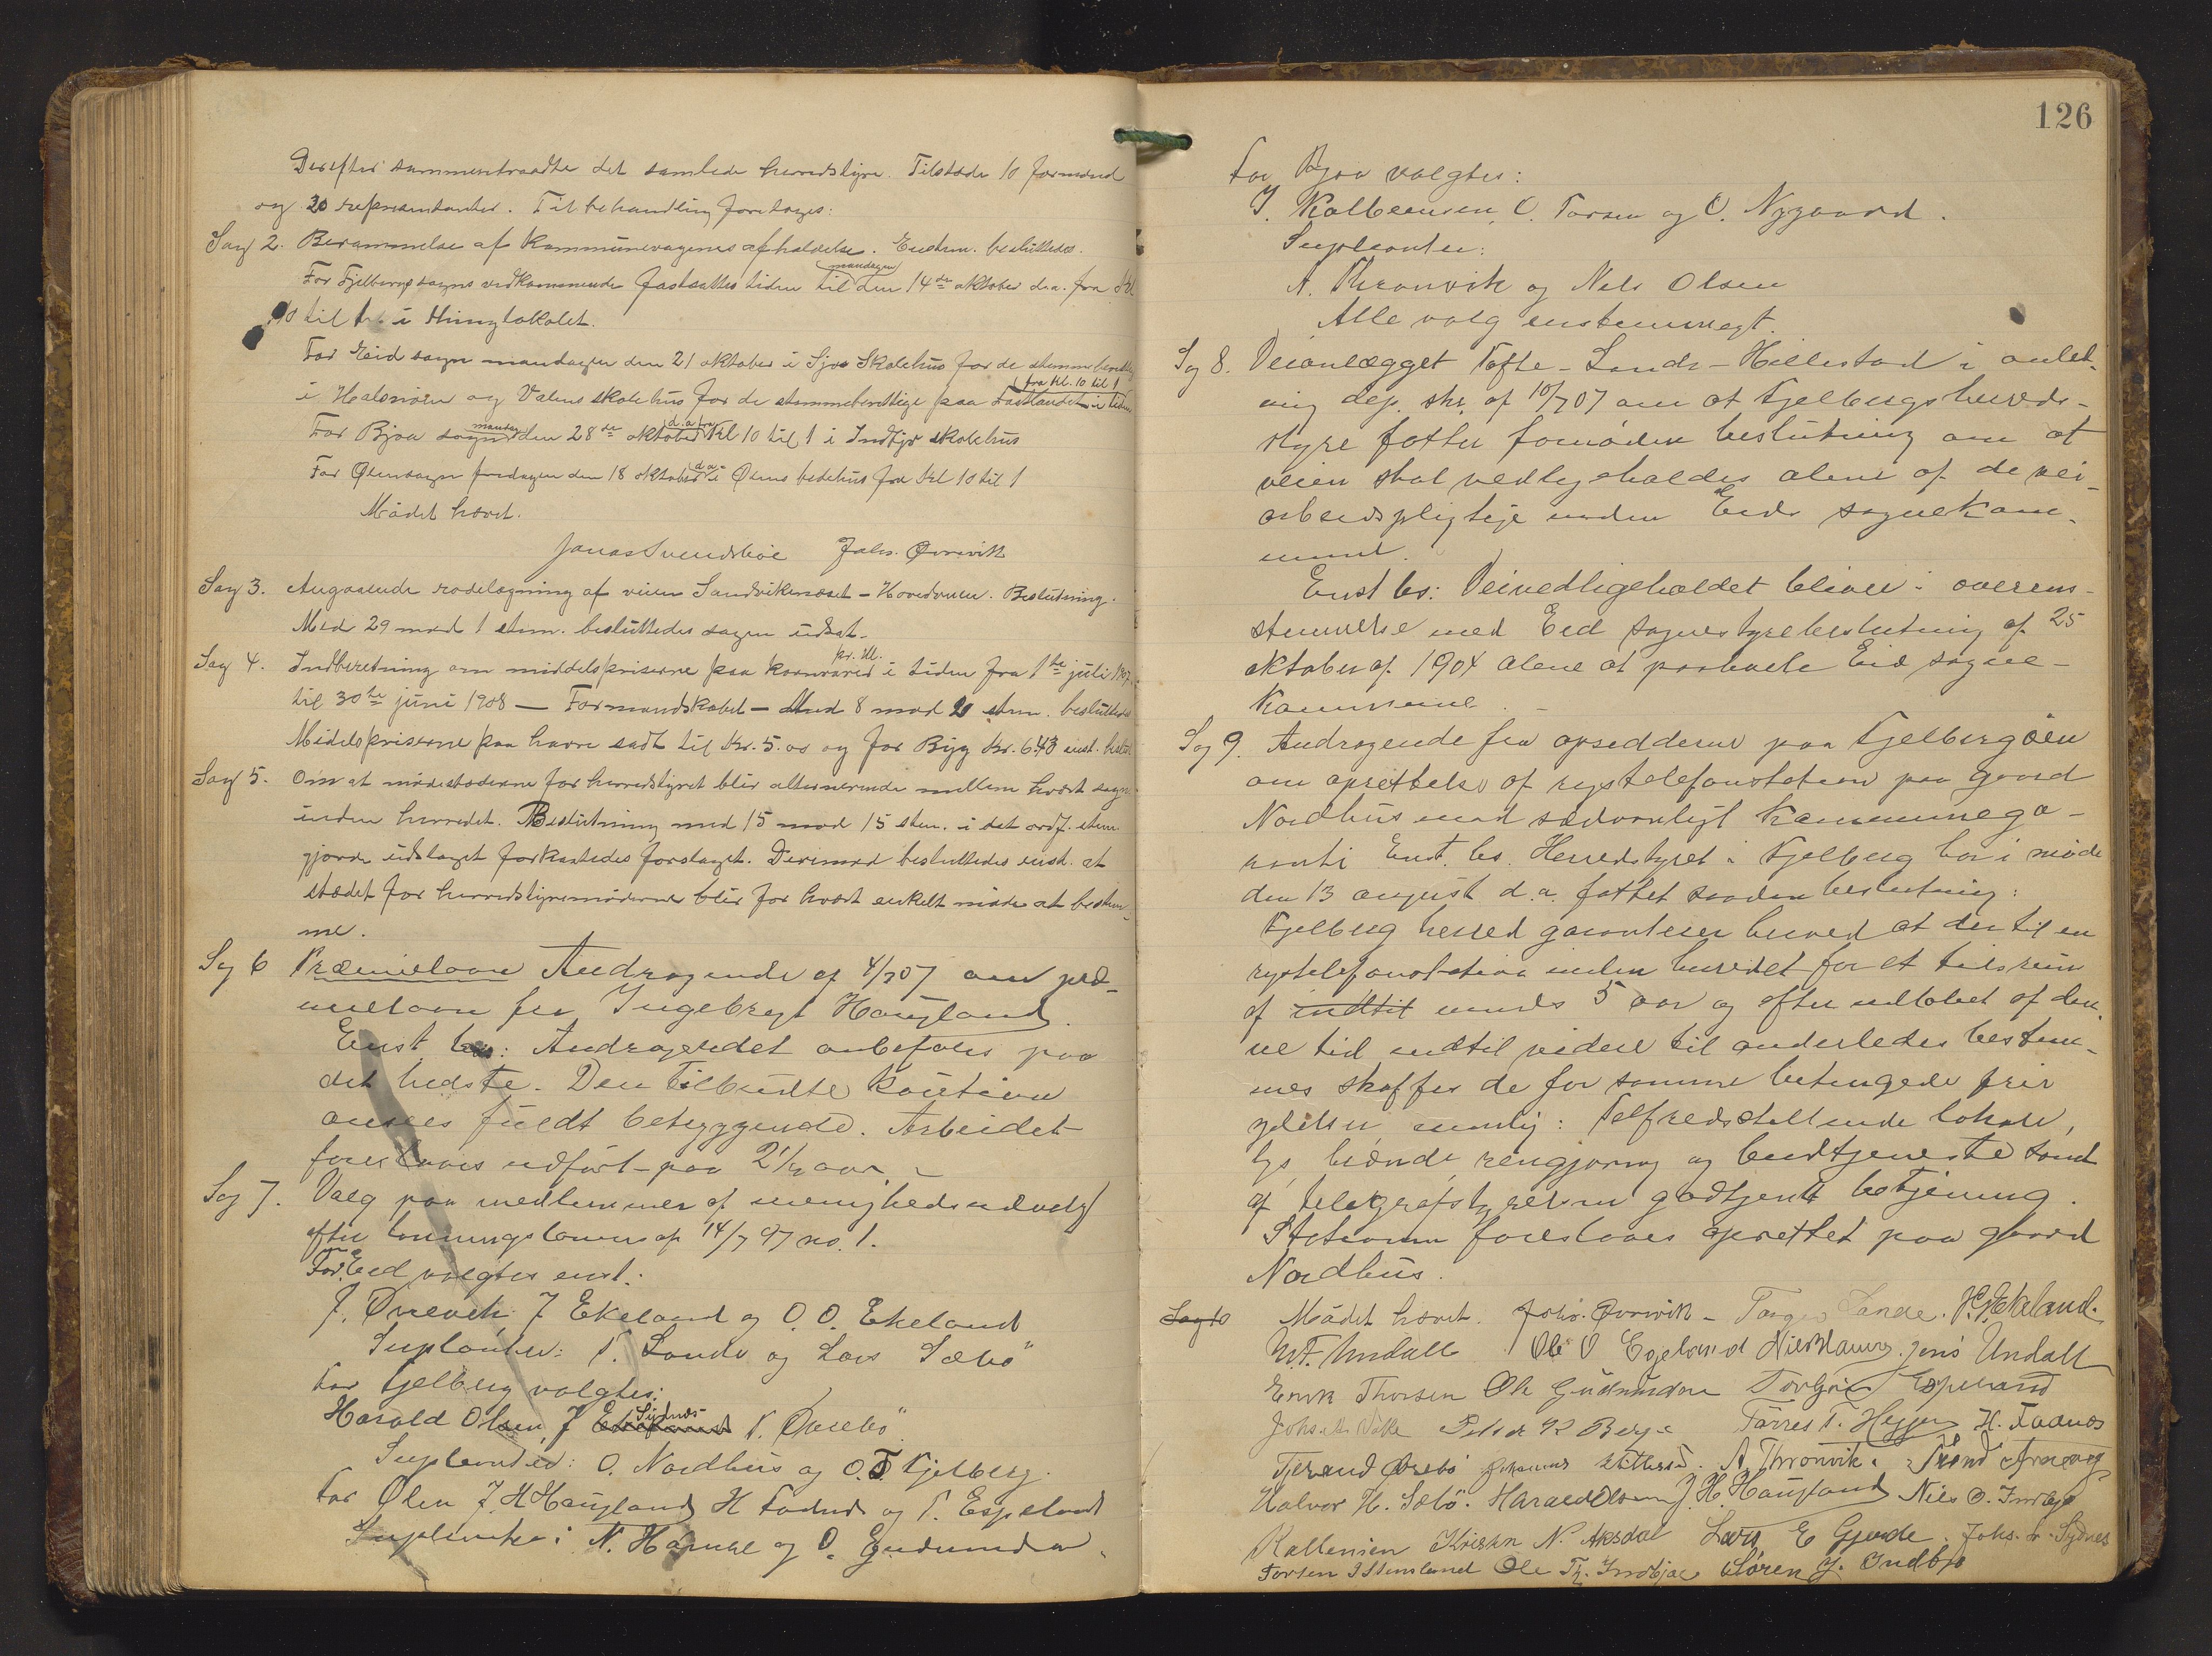 Derefter sammentraadte det samlede herredstyre. Tilstede 10 formænd
og 20 repræsentanter. Til behandling foretoges:
Sag 2. Berammelse af kommunevagenes afholdelse. Enstem. besluttedes.
For Fjelbergsogns vedkommende fastsattes tiden til mandagen den 14de oktober d.a. fra kl
10 til 1. i thinglokalet.
For Eid sogn mandagen den 21 oktober i Sjoe Skolehus for de stemmeberettig
i Halsnøen og Valens skolehus for de stemmeberettige paa Fastlandet i tiden fra kl. 10 til 1
For Bjoa sogn mandag den 28de oktober d.a. fra kl 10 til 1 i Indbjo skolehus
For Ølensogn fredagen den 18 oktober d.a. i Ølens bedehus fra kl 10 til 1
Mødet hævet.
Jonas Svendsbøe Johs. Ørrevik
Sag 3. Angaaende rodelægning af veien Sandvikenæset - Hovedveien. Beslutning.
Med 29 mod 1 stem. besluttedes sagen udsat.
Sag 4. Indberetning om middelspriserne paa kornvarer pr. hl. i tiden fra 1ste juli 1907
til 30te juni 1908 — Formandskabet — Med 8 mod 2 stem. besluttedes
Midelspriserne paa havre sadt til Kr. 5.00 og for Byg Kr. 6.43 enst.
Sag 5. Om at mødestederne for herredstyret blir alternerende mellem hvert sogn
inden herredet. Beslutning med 15 mod 15 stem. i det ordf. stem.
gjorde udslaget forkastedes forslaget. Derimod besluttedes enst. at
stedet for herredstyremøderne blir for hvert enkelt møde at bestem-
me.
Sag 6 Præmielaan Andragende af 4/7 07 om præ-
mielaan fra Ingebregt Haugland.
Enst. bes: Andragendet anbefales paa
det bedste. Den tilbudte kaution
ansees fuldt betryggende. Arbeidet
foreslaaes udført paa 2½ aar. -
Sag 7. Valg paa medlemmer af menighedsudvalg
efter lønningslovens af 14/7 97 no. 1.
For Eid valgtes enst.:
J. Ørrevik J Ekeland og O. O. Ekeland
Suplanter: T. Lande og Lars Sæbø
For Fjelberg valgtes:
Harald Olsen, J Sydnes T. Øvrebø
Suplanter: O. Nordhus og O. T. Fjelberg.
For Ølen J. H Haugland H Fadnes og T. Espeland
Suplenter: N. Hamre og O. Gudmundsen.
126
For Bjoa valgtes:
I. Kalbeensen, O. Torsen og O. Nygaard.
Supleanter:
A. Thronvik og Nels Olsen
Alle valg enstemmegt.
Sag 8. Veianlægget Tofte - Lande - Hillestad i anled-
ning dep. skr. af 10/7 07 om at Fjelbergs herreds-
styre fatter fornøden beslutning om at
veien skal vedligeholdes alene af de vei-
arbeidspligtige inden Eids sognekom-
mune.
Enst bes: Veivedligeholdet bliver i overens-
stemmelse med Eid sognestyrebeslutning af 25
oktober af 1904 alene at paahvile Eid sogne-
kommune. -
Sag 9. Andragende fra opsidderne paa Fjelbergøen
om oprettelse af rigstelefonstation paa gaard
Nordhus mod sædvanligt kommunega-
ranti Enst. bes. Herredstyret i Fjelberg har i møde
den 13 august d.a. fattet saadan beslutning:
Fjelberg herred garanterer herved at der til en
rigstelefonstation inden herredet for et tidsrum
af indtil mindst 5 aar og efter udløbet af den-
ne tid indtil videre til anderledes bestem-
mes skaffes de for samme betingede frie
ydelser nemlig: Tilfredsstillende lokale,
lys, brænde, rengjøring og budtjeneste samt
af telegrafstyrelsen godkjendt betjening.
Stationen foreslaaes oprettet paa gaard
Nordhus.
Sag 10 Mødet hævet. Johs. Ørrevik - Torger Lande. H. Ekeland.
M. F. Undall Ole O Egeland Nils Hamre. Jens Undall
Enok Thorsen Ole Gudmundsen Torbjørn Espeland
Johs. Peder K Berge Tørres T. Heggen H. Fadnes
Tjerand Øvrebø Johannes A. Thronvik.
Halvor H. Sæbø. Harald Olsen J. H. Haugland Nils O. Indbjo
Kallensen Kristen N. Aksdal Lars E Gjerde. Johs. Sydnes
Torsen I Stensland Ole Th. Indbjoe Søren J. Indbjo